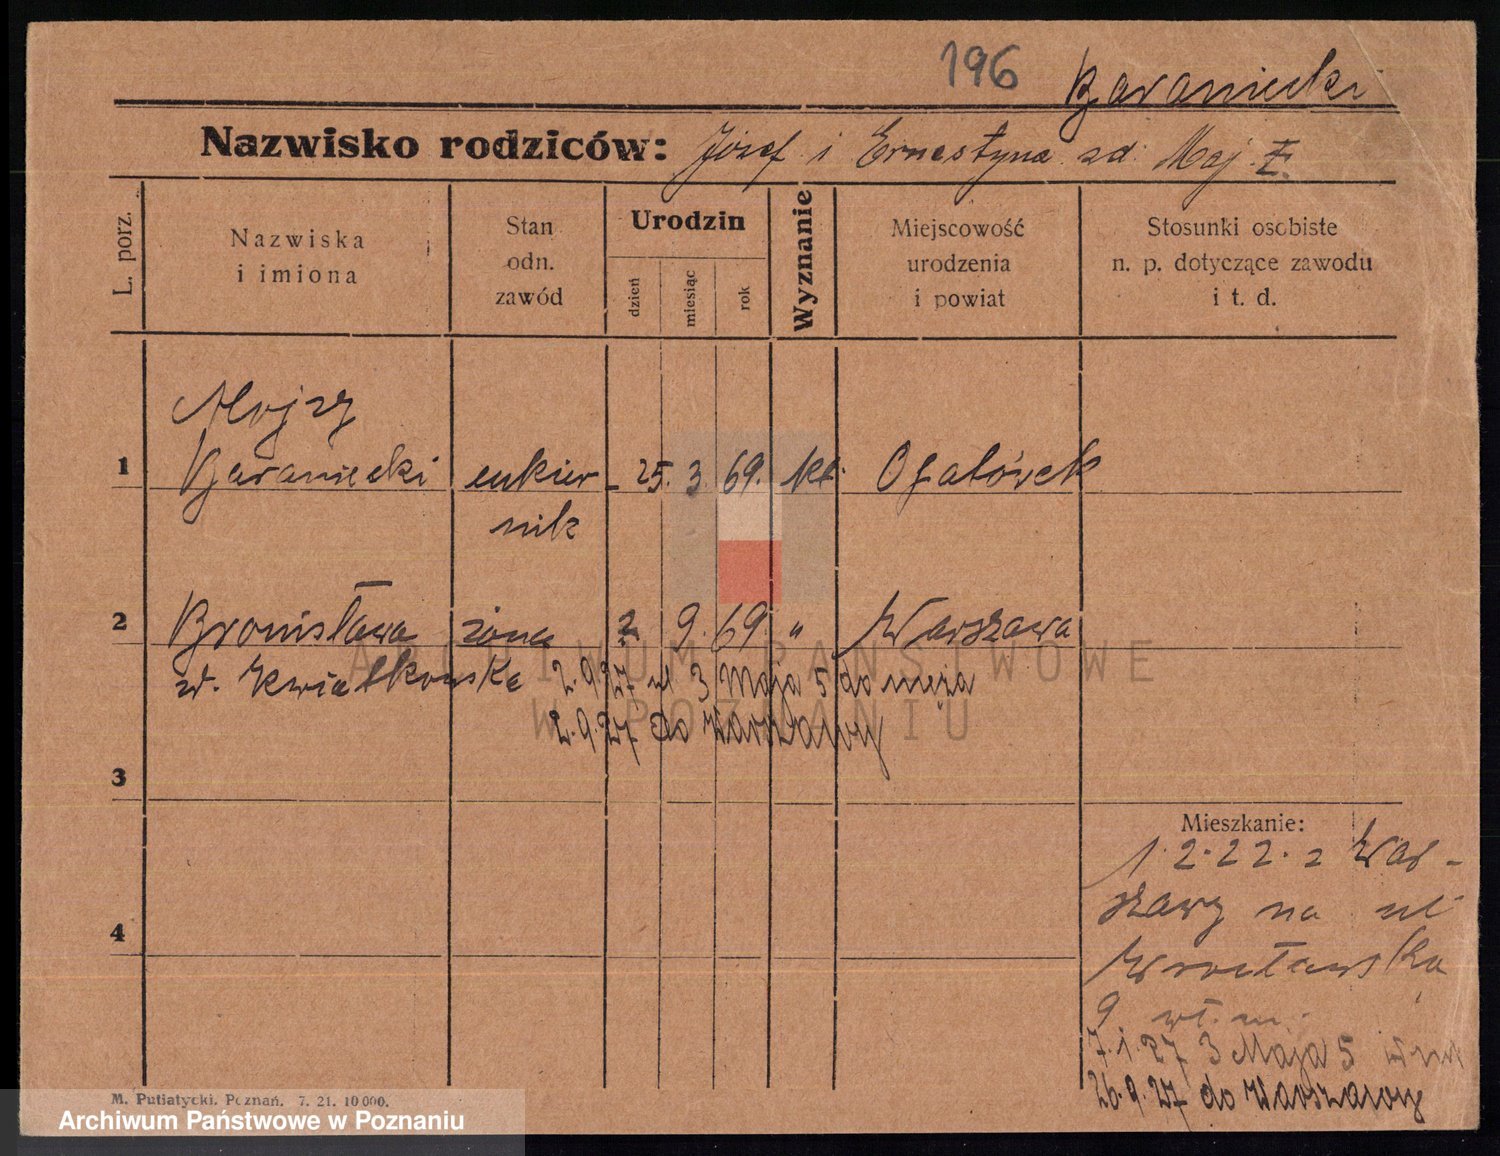 196 Baraniecki
Nazwisko rodziców: Józef i Ernestyna zd. Maj.
L. porz.
Nazwiska
i imiona
Stan
odn.
zawód
Urodzin
dzień
miesiąc
rok
Wyznanie
Miejscowość
urodzenia
i powiat
Stosunki osobiste
n. p. dotyczące zawodu
i t. d.
Mojzy
1 Baraniecki cukier- 25. 3. 69. kt.
nik
2 Bronisława żona 2 9. 69 " Warszawa
zd. Kwiatkowska 2.9.27 ul 3 Maja 5 do męża
2.9.27 do Warszawy
3
4
Mieszkanie:
1.2.22. z War-
szawy na ul
Wrocławska
9
7.1.27 3 Maja 5
26.9.27 do Warszawy
M. Putiatycki. Poznań. 7. 21. 10 000.
ARCHIWUM PAŃSTWOWE
W POZNANIU
Archiwum Państwowe w Poznaniu